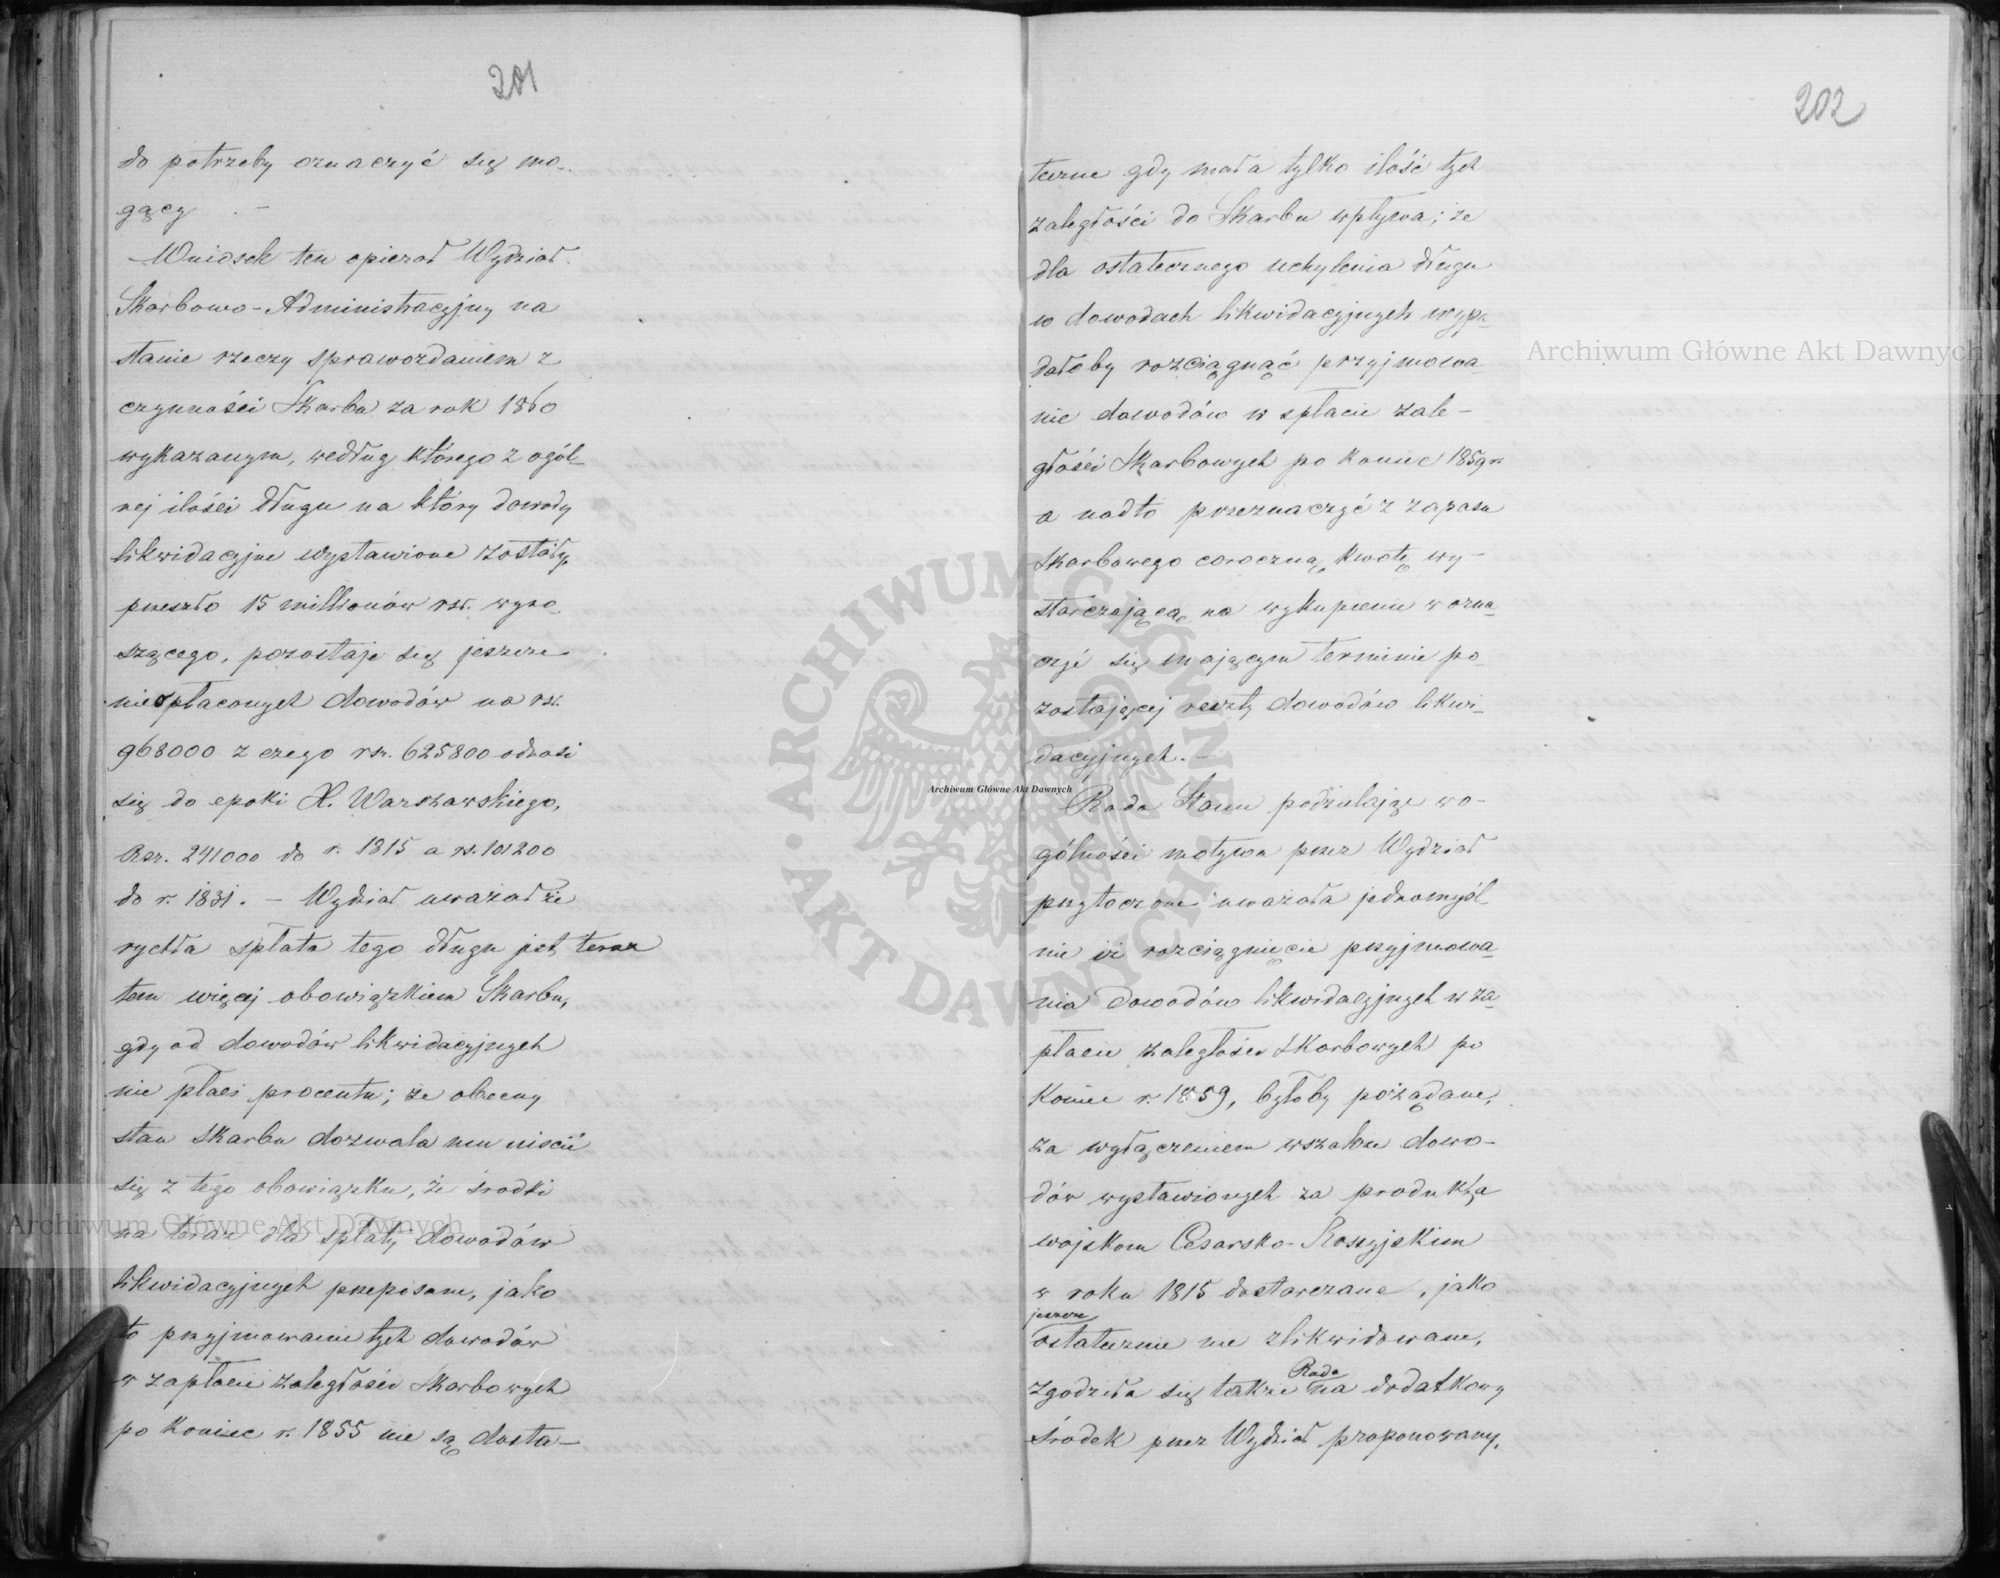 201
do potrzeby oznaczyć się mo-
gący. –
Wniosek ten opierał Wydział
Skarbowo-Administracyjny na
stanie rzeczy sprawozdaniem z
czynności Skarbu za rok 1860
wykazanym, według którego z ogól-
nej ilości długu na który dowody
likwidacyjne wystawione zostały,
przeszło 15 millionów rsr. wyno-
szącego, pozostaje się jeszcze
niespłaconych dowodów na rsr.
968000 z czego rsr. 625800 odnosi
się do epoki X. Warszawskiego,
Rsr. 241000 do r. 1815 a rs. 101200
do r. 1831. – Wydział uważał że
rychła spłata tego długu jest teraz
tem więcej obowiązkiem Skarbu,
gdy od dowodów likwidacyjnych
nie płaci procentu; że obecny
stan Skarbu dozwala mu uiścić
się z tego obowiązku, że środki
na teraz dla spłaty dowodów
likwidacyjnych przepisane, jako
to przyjmowanie tych dowodów
w zapłacie zaległości Skarbowych
po koniec r. 1855 nie są dosta-
202
teczne gdy mała tylko ilość tych
zaległości do Skarbu wpływa; że
dla ostatecznego uchylenia długu
w dowodach likwidacyjnych wypa-
dałoby rozciągnąć przyjmowa-
nie dowodów w spłacie zale-
głości Skarbowych po koniec 1859 r.
a nadto przeznaczyć z zapasu
Skarbowego coroczną kwotę wy-
starczającą na wykupienie w ozna-
czyć się mającym terminie po-
zostającej reszty dowodów likwi-
dacyjnych. –
Rada Stanu podzielając wo-
gólności motywa przez Wydział
przytoczone uważała jednomyśl-
nie iż rozciągnięcie przyjmowa-
nia dowodów likwidacyjnych w za-
płacie zaległości Skarbowych po
koniec r. 1859, byłoby pożądane,
za wyłączeniem wszakże dowo-
dów wystawionych za produkta
wojskom Cesarsko-Rossyjskim
w roku 1815 dostarczane, jako
jeszcze
ostatecznie nie zlikwidowane,
Rada
zgodziła się także na dodatkowy
środek przez Wydział proponowany,
Archiwum Główne Akt Dawnych
Archiwum Główne Akt Dawnych
Archiwum Główne Akt Dawnych
ARCHIWUM GŁÓWNE AKT DAWNYCH